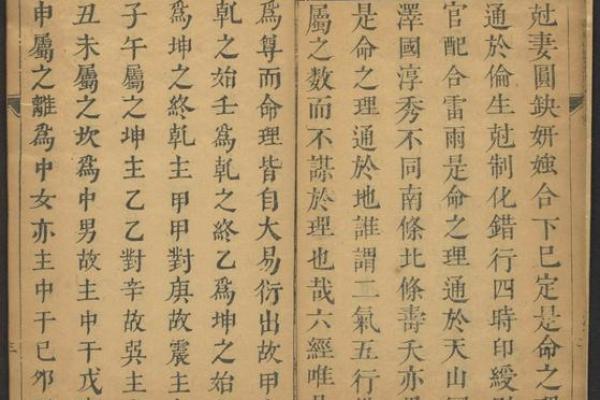 尅妻圓缺妍媸合下巳定是命之理
通於倫生尅制化錯行四時印綬
官配合雷雨是命之理通於天山
澤國淳秀不同南條北條壽夭亦
是命之理通於地誰謂二氣五行
屬之数而不謀於理也哉六經唯
爲尊而命理皆自大易衍出故甲
乹之始壬爲乹之終乙爲坤之始
爲坤之終乹主甲甲對庚故震主
子午屬之坤主乙乙對辛故巽主
丑未屬之坎爲中男故主中干戊
申屬之離爲中女亦主中干巳卯